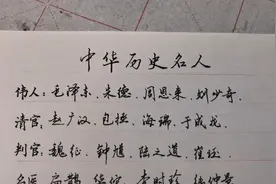 中华历史名人
伟人：毛泽东、朱德、周恩来、刘少奇、
清官：赵广汉、包拯、海瑞、于成龙、
判官：魏征、钟馗、陆之道、崔珏、
名医：扁鹊、华佗、李时珍、张仲景、